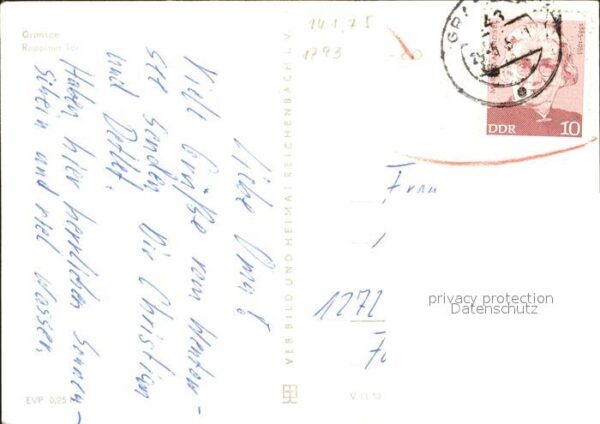 Gransee
Ruppiner Tor
Liebe Omi!
Viele Grüße vom Wentow-
see senden Dir Christian
und Detlef.
Haben hier herrlichen Sonnen-
schein und viel Wasser.
EVP 0,25
VEB BILD UND HEIMAT REICHENBACH I. V.
V 11 50
141,75
1793
43
DDR 10
Frau
1272
privacy protection
Datenschutz